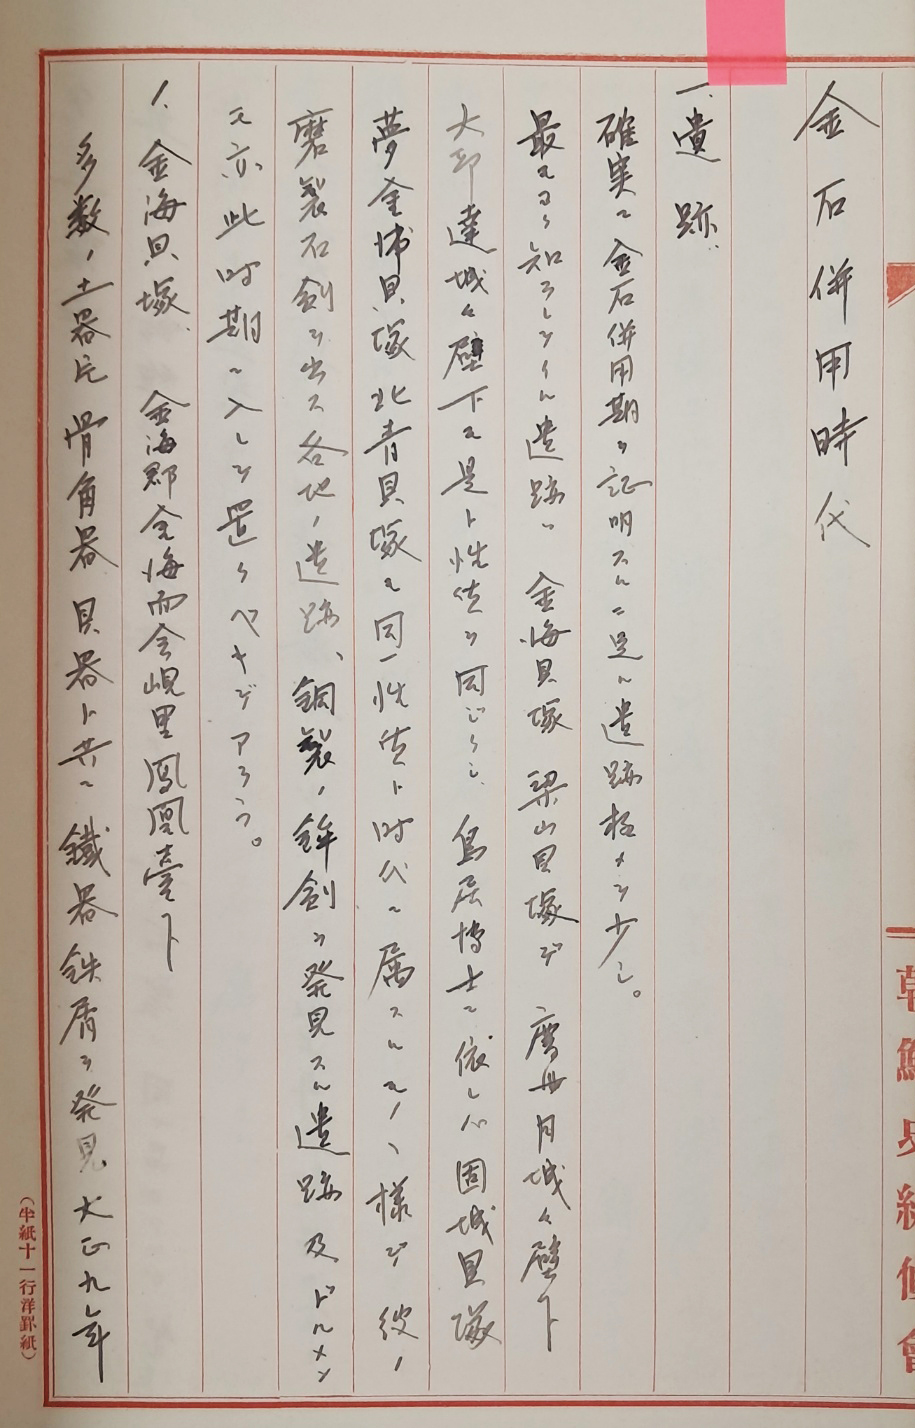 金石併用時代
一、遺跡
確実ニ金石併用期ヲ証明スルニ足ル遺跡極メテ少シ。
最モヨク知ラレテイル遺跡ハ 金海貝塚 梁山貝塚デ 慶州月城々壁下
大邱達城々壁下モ是ト性質ヲ同じくし、鳥居博士ニ依レバ固城貝塚
夢金浦貝塚 北青貝塚モ同一性質ト時代ニ属スルモノヽ様デ 彼ノ
磨製石剣ヲ出ス各地ノ遺跡、銅製ノ鉾剣ヲ発見スル遺跡及ドルメン
モ亦此時期ニ入レテ置クベキデアラウ。
1. 金海貝塚、 金海郡金海面会峴里鳳凰臺下
多数ノ土器片 骨角器 貝器ト共ニ 鐵器鉄屑ヲ発見 大正九年
(半紙十一行洋罫紙)
朝鮮史編修會